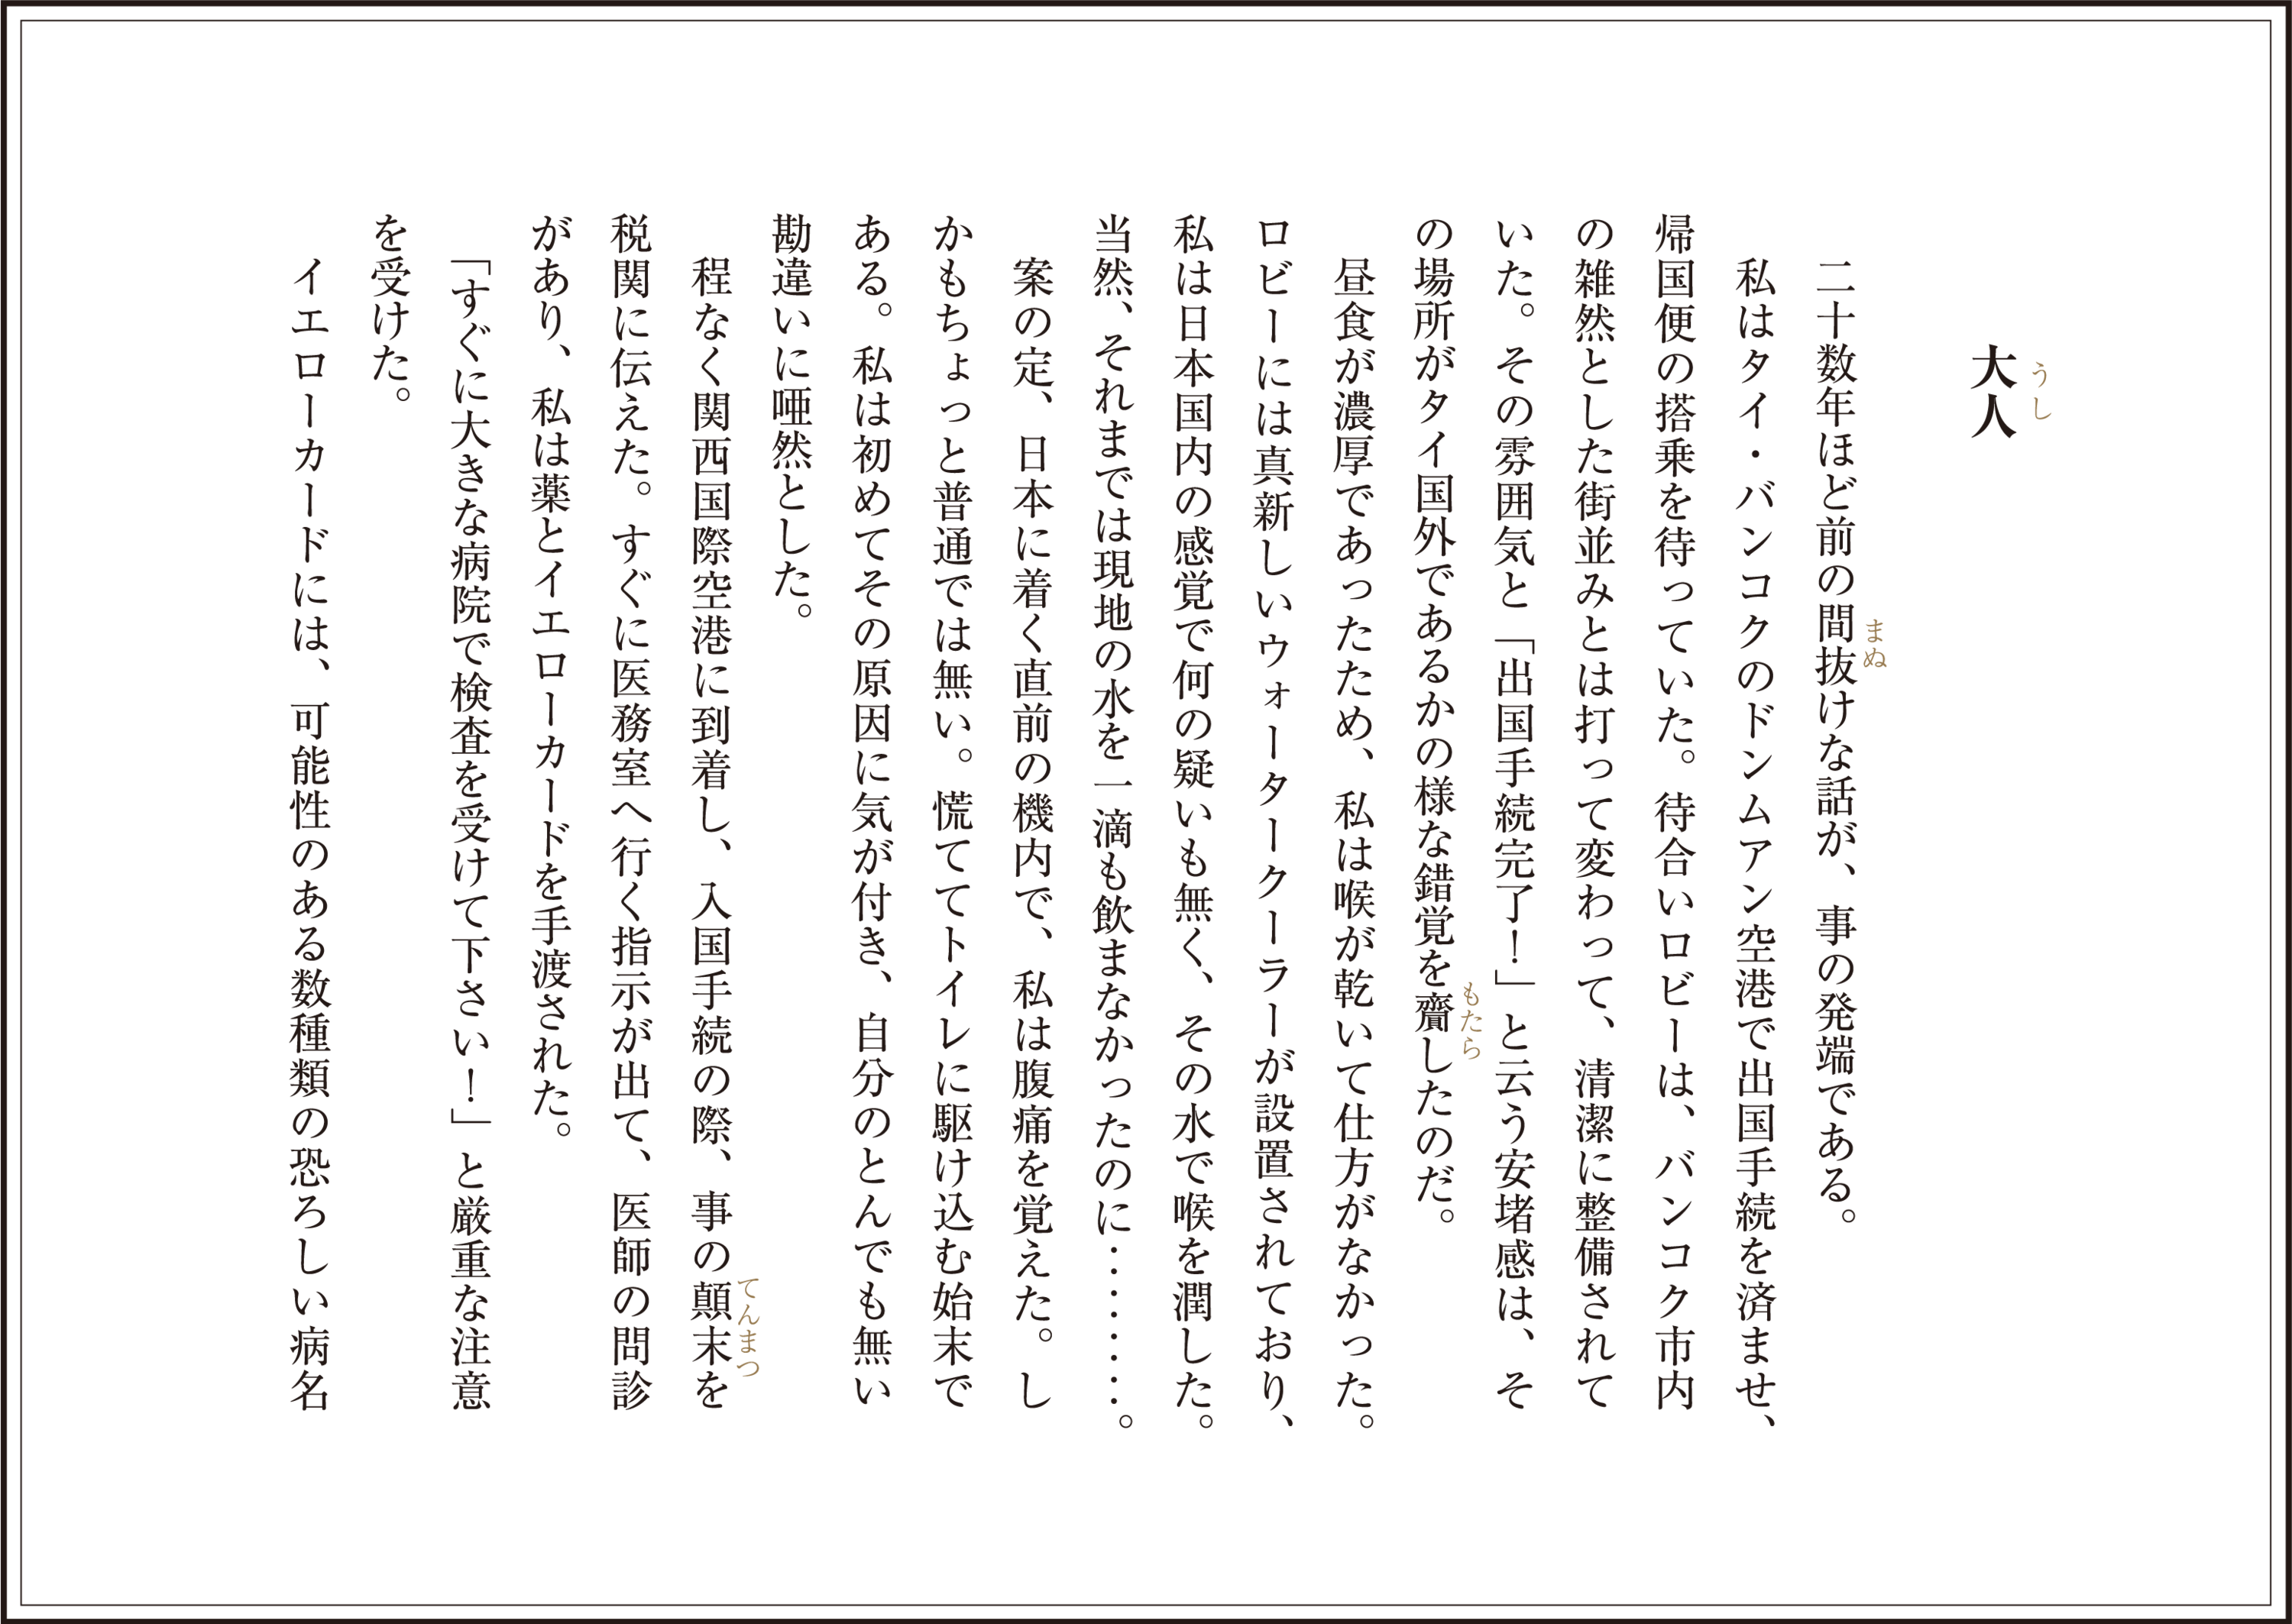 大人
うし
二十数年ほど前の間抜けな話が、事の発端である。
まぬ
私はタイ・バンコクのドンムアン空港で出国手続を済ませ、
帰国便の搭乗を待っていた。待合いロビーは、バンコク市内
の雑然とした街並みとは打って変わって、清潔に整備されて
いた。その雰囲気と「出国手続完了！」と云う安堵感は、そ
の場所がタイ国外であるかの様な錯覚を齎したのだ。
もたら
昼食が濃厚であったため、私は喉が乾いて仕方がなかった。
ロビーには真新しいウォータークーラーが設置されており、
私は日本国内の感覚で何の疑いも無く、その水で喉を潤した。
当然、それまでは現地の水を一滴も飲まなかったのに………。
案の定、日本に着く直前の機内で、私は腹痛を覚えた。し
かもちょっと普通では無い。慌ててトイレに駆け込む始末で
ある。私は初めてその原因に気が付き、自分のとんでも無い
勘違いに唖然とした。
程なく関西国際空港に到着し、入国手続の際、事の顛末を
てんまつ
税関に伝えた。すぐに医務室へ行く指示が出て、医師の問診
があり、私は薬とイエローカードを手渡された。
「すぐに大きな病院で検査を受けて下さい！」と厳重な注意
を受けた。
イエローカードには、可能性のある数種類の恐ろしい病名